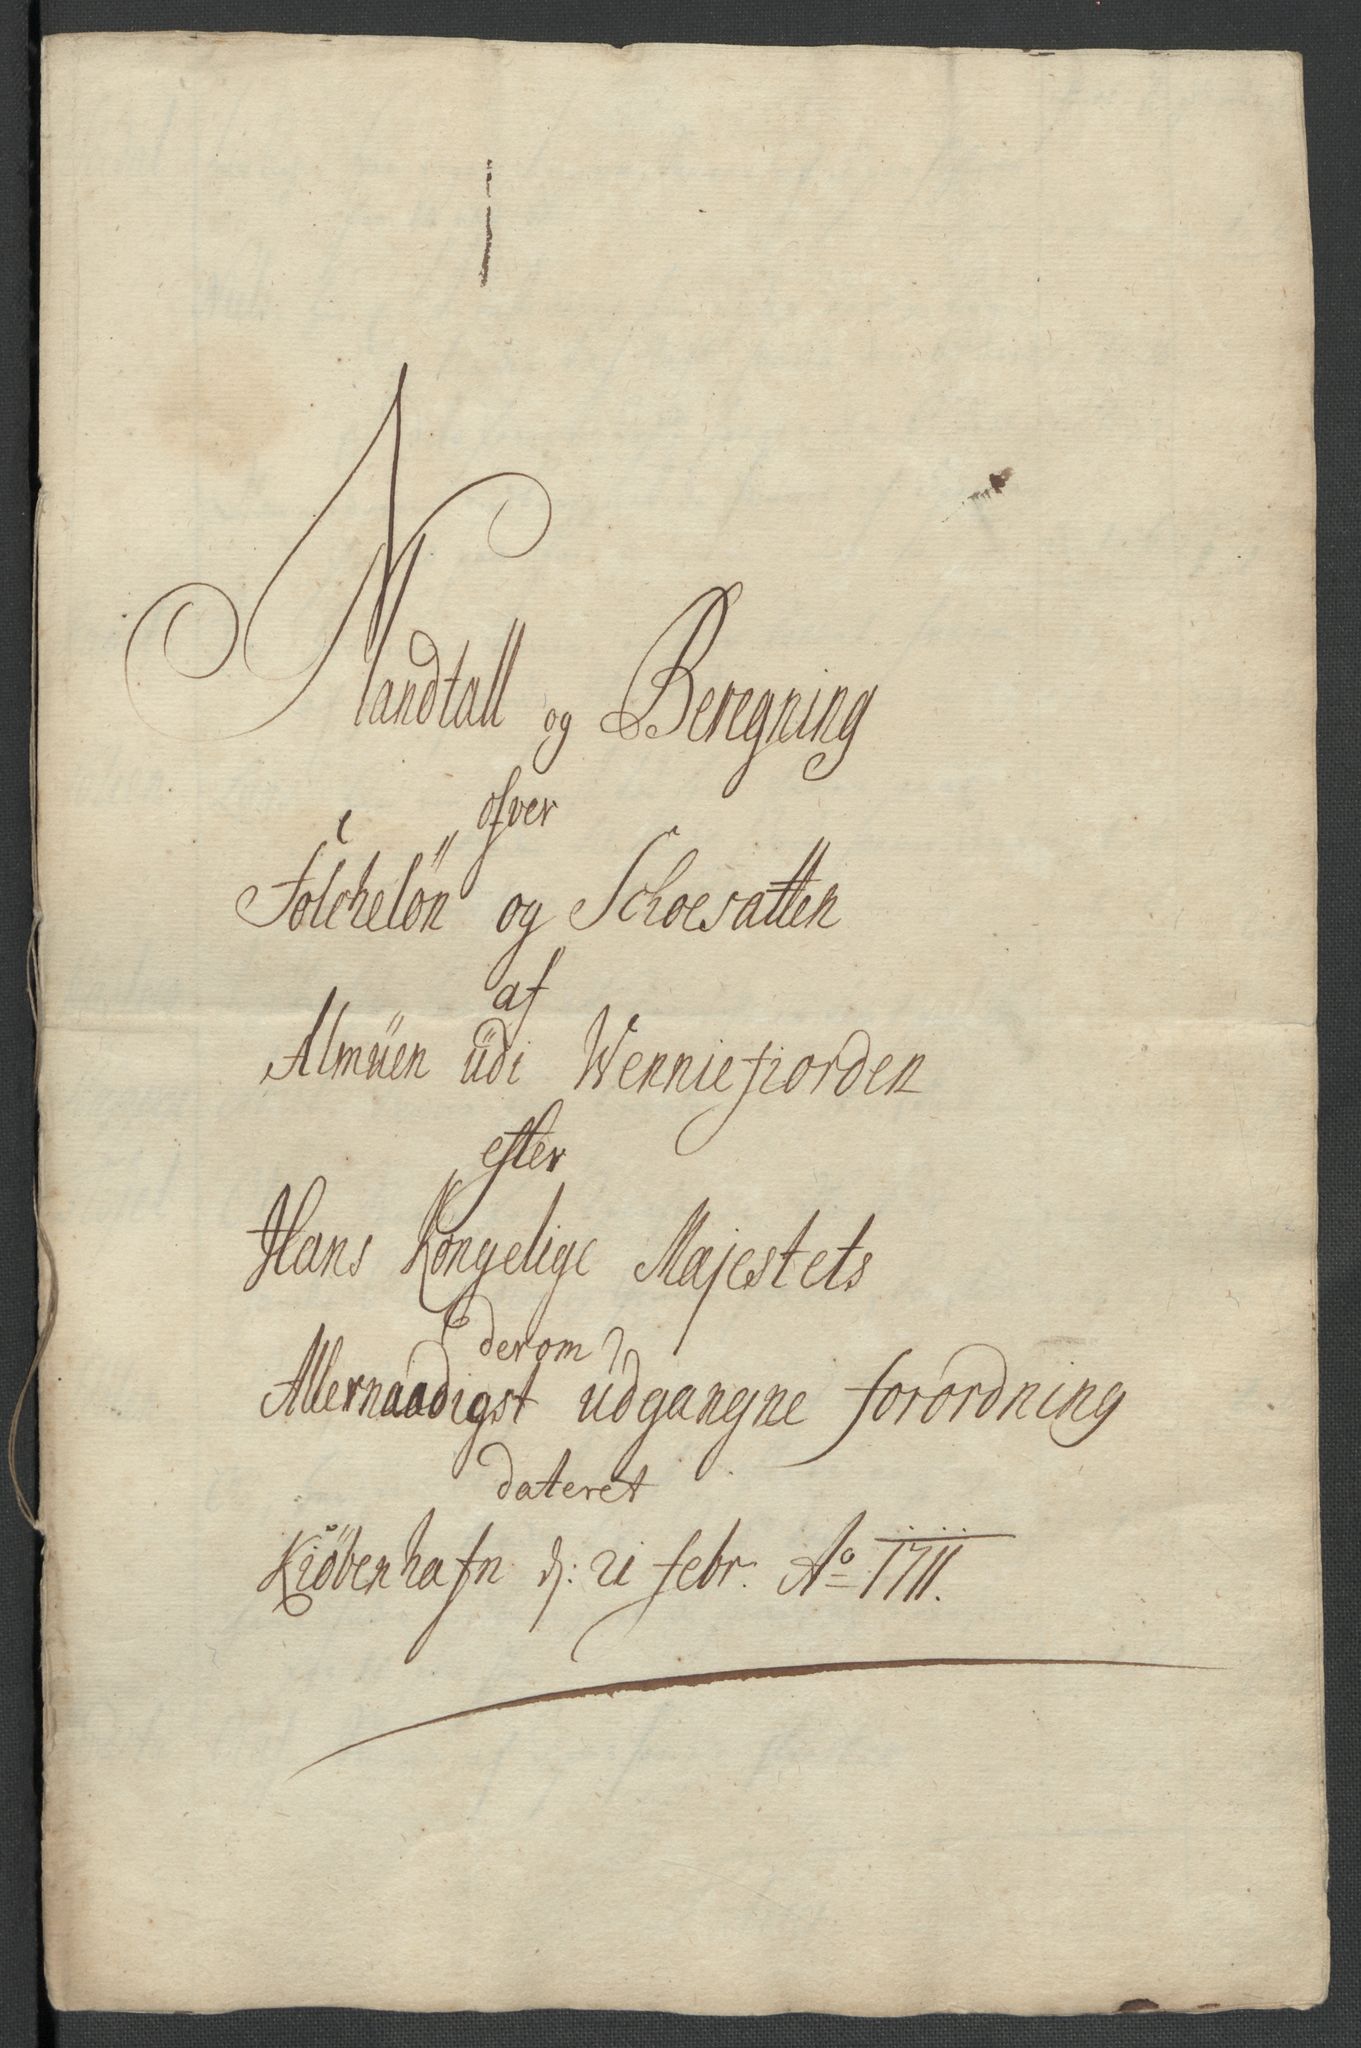 Mandtall og Beregning
ofver
Folchelön og Schoesatten
af
Almüen üdi Wenniefiorden
efter
Hans Kongelige Majestets
derom
Allernaadigst udgangne forordning
dateret
Kiöbenhafn d: 21 febr. Ao 1711.